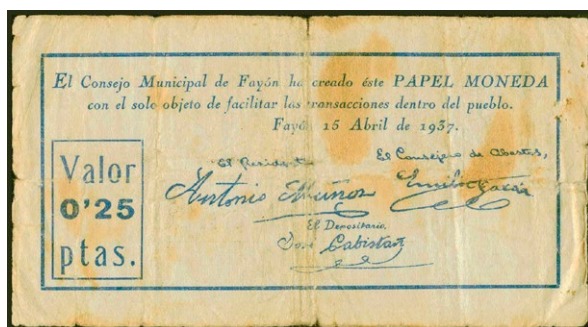 El Consejo Municipal de Fayón ha creado éste PAPEL MONEDA
con el solo objeto de facilitar las transacciones dentro del pueblo.
Fayón 15 Abril de 1937.
Valor
0'25
ptas.
El Presidente
Antonio Muñoz
El Consejero de Abastos,
Emilio
El Depositario
José Cabistañ